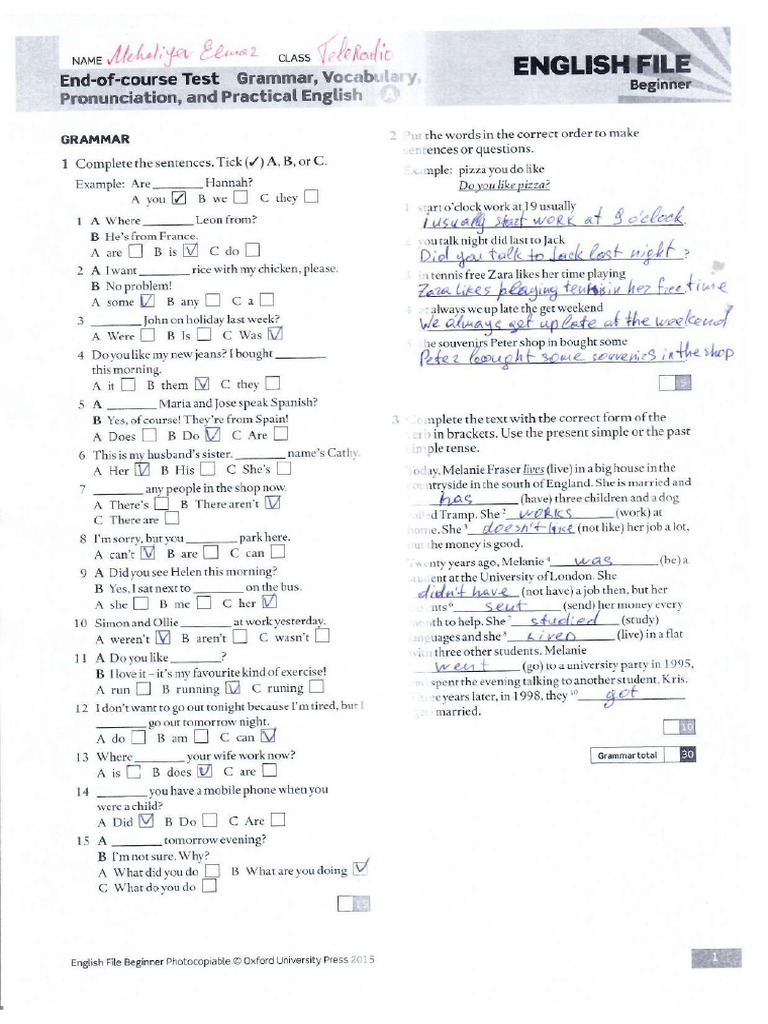 NAME Mehaliyev Elmar CLASS TeleRadio
End-of-course Test Grammar, Vocabulary,
Pronunciation, and Practical English A
ENGLISH FILE
Beginner
GRAMMAR
1 Complete the sentences. Tick (✓) A, B, or C.
Example: Are ________ Hannah?
A you ☑ B we ☐ C they ☐
1 A Where ________ Leon from?
B He's from France.
A are ☐ B is ☑ C do ☐
2 A I want ________ rice with my chicken, please.
B No problem!
A some ☑ B any ☐ C a ☐
3 ________ John on holiday last week?
A Were ☐ B Is ☐ C Was ☑
4 Do you like my new jeans? I bought ________
this morning.
A it ☐ B them ☑ C they ☐
5 A ________ Maria and Jose speak Spanish?
B Yes, of course! They're from Spain!
A Does ☐ B Do ☑ C Are ☐
6 This is my husband's sister. ________ name's Cathy.
A Her ☑ B His ☐ C She's ☐
7 ________ any people in the shop now.
A There's ☐ B There aren't ☑
C There are ☐
8 I'm sorry, but you ________ park here.
A can't ☑ B are ☐ C can ☐
9 A Did you see Helen this morning?
B Yes, I sat next to ________ on the bus.
A she ☐ B me ☐ C her ☑
10 Simon and Ollie ________ at work yesterday.
A weren't ☑ B aren't ☐ C wasn't ☐
11 A Do you like ________?
B I love it – it's my favourite kind of exercise!
A run ☐ B running ☑ C runing ☐
12 I don't want to go out tonight because I'm tired, but I
________ go out tomorrow night.
A do ☐ B am ☐ C can ☑
13 Where ________ your wife work now?
A is ☐ B does ☑ C are ☐
14 ________ you have a mobile phone when you
were a child?
A Did ☑ B Do ☐ C Are ☐
15 A ________ tomorrow evening?
B I'm not sure. Why?
A What did you do ☐ B What are you doing ☑
C What do you do ☐
15
2 Put the words in the correct order to make
sentences or questions.
Example: pizza you do like
Do you like pizza?
1 start o'clock work at 19 usually
i usually start work at 9 o'clock.
2 you talk night did last to Jack
Did you talk to Jack last night ?
3 in tennis free Zara likes her time playing
Zara likes playing tennis in her free time
always we up late the get weekend
We always get up late at the weekend
5 the souvenirs Peter shop in bought some
Peter bought some souvenies in the shop
5
3 Complete the text with the correct form of the
verb in brackets. Use the present simple or the past
simple tense.
Today, Melanie Fraser lives (live) in a big house in the
countryside in the south of England. She is married and
has (have) three children and a dog
called Tramp. She 2 works (work) at
home. She 3 doesn't like (not like) her job a lot,
but the money is good.
Twenty years ago, Melanie 4 was (be) a
student at the University of London. She
didn't have (not have) a job then, but her
parents 6 sent (send) her money every
month to help. She 7 studied (study)
languages and she 8 lived (live) in a flat
with three other students. Melanie
went (go) to a university party in 1995,
and spent the evening talking to another student, Kris.
Three years later, in 1998, they 10 got
(get) married.
10
Grammar total 30
English File Beginner Photocopiable © Oxford University Press 2015
1